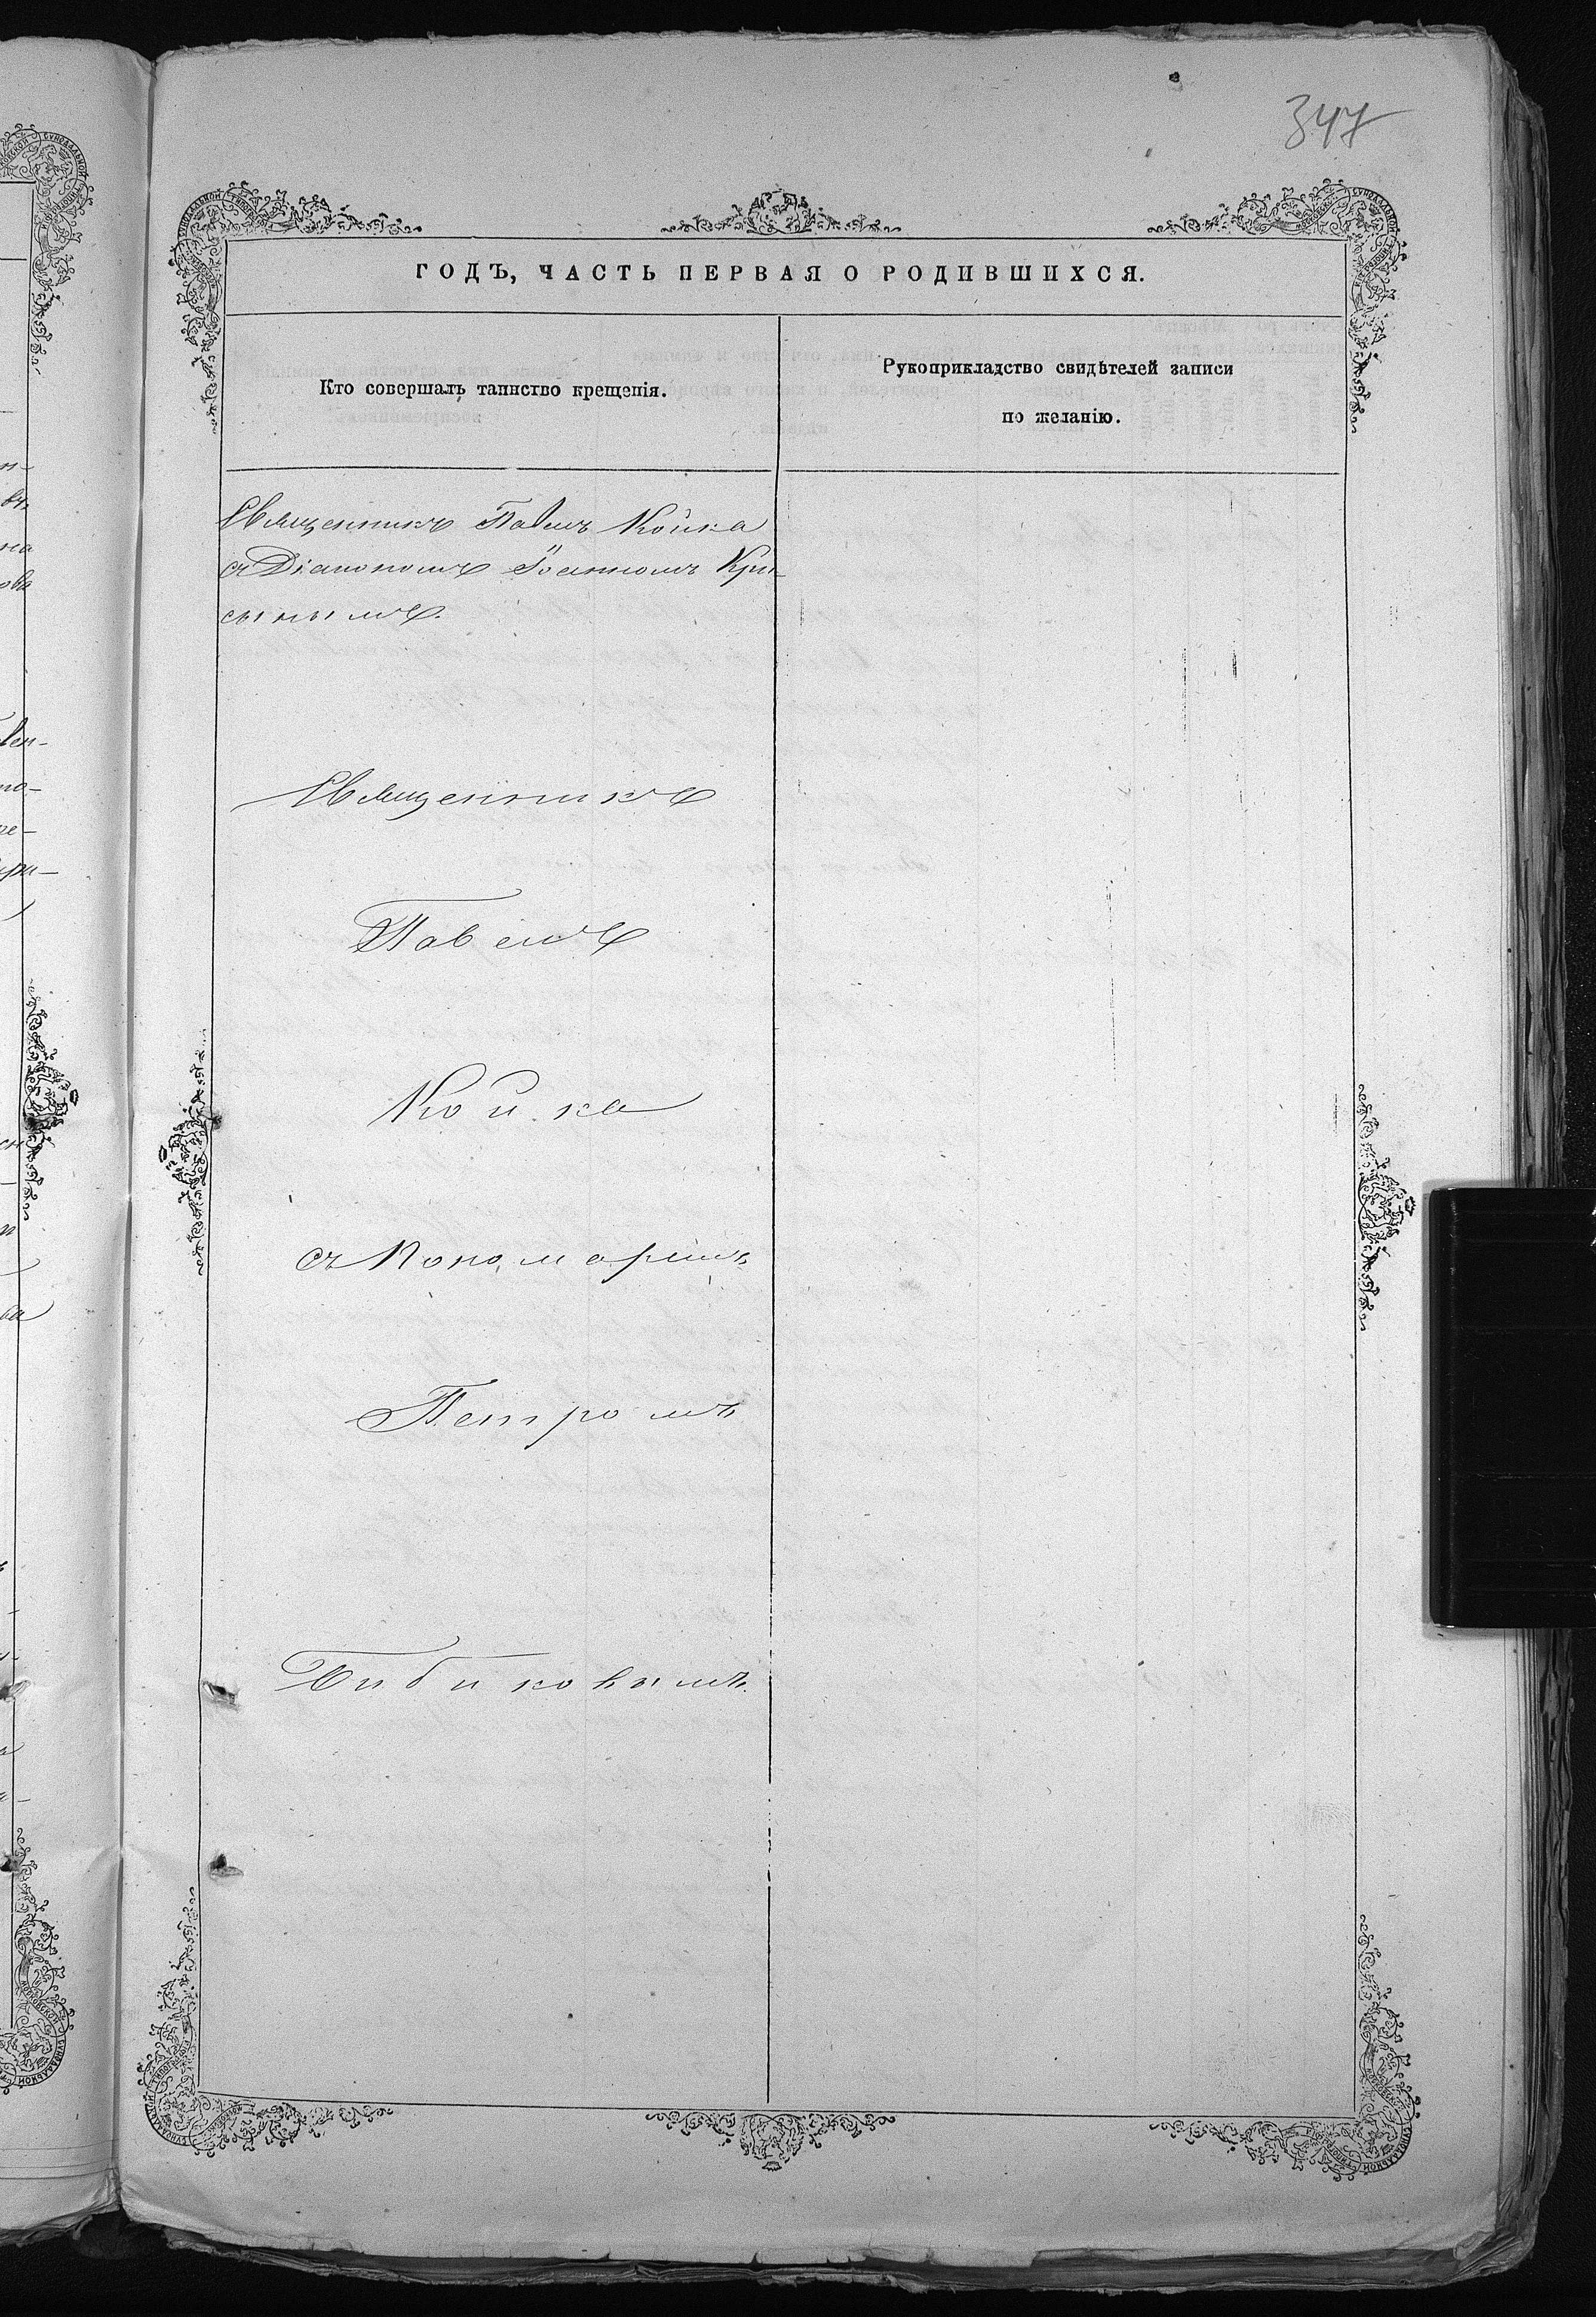 347
ГОДЪ, ЧАСТЬ ПЕРВАЯ О РОДИВШИХСЯ.
Кто совершалъ таинство крещенія.
Рукоприкладство свидѣтелей записи
по желанію.
Священникъ Павелъ Койка
съ Діакономъ Іоанномъ Кри-
сынымъ.
Священникъ
Павелъ
Койка
съ Пономаремъ
Петромъ
Бибиковымъ.